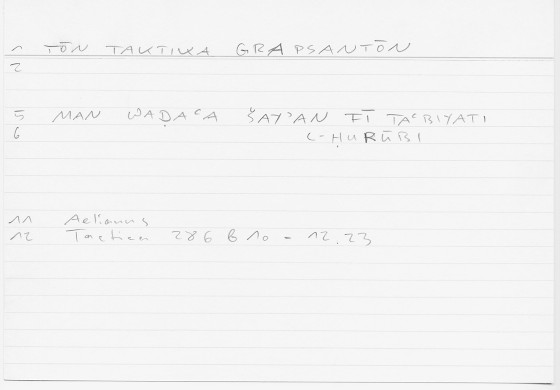 1 TŌN TAKTIKA GRAPSANTŌN
2
5 MAN WAḌAʿA ŠAYʾAN FĪ TAʿBIYATI
6 L-ḤURŪBI
11 Aelianus
12 Tactica 286 B 10 - 12.23